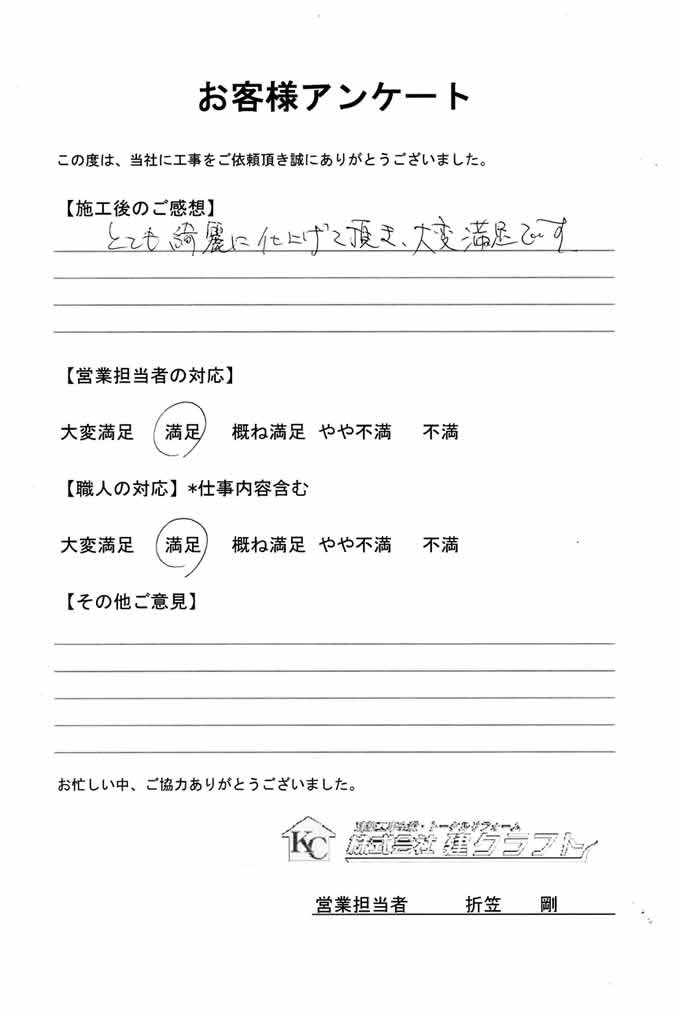 お客様アンケート
この度は、当社に工事をご依頼頂き誠にありがとうございました。
【施工後のご感想】
とても綺麗に仕上げて頂き、大変満足です
【営業担当者の対応】
大変満足 満足 概ね満足 やや不満 不満
【職人の対応】*仕事内容含む
大変満足 満足 概ね満足 やや不満 不満
【その他ご意見】
お忙しい中、ご協力ありがとうございました。
KC
・トータルリフォーム
株式会社 建クラフト
営業担当者 折笠 剛